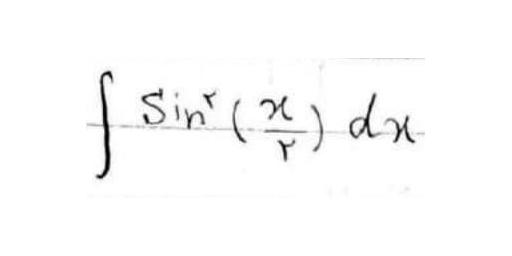 ∫ Sin^۲ (x/۲) dx